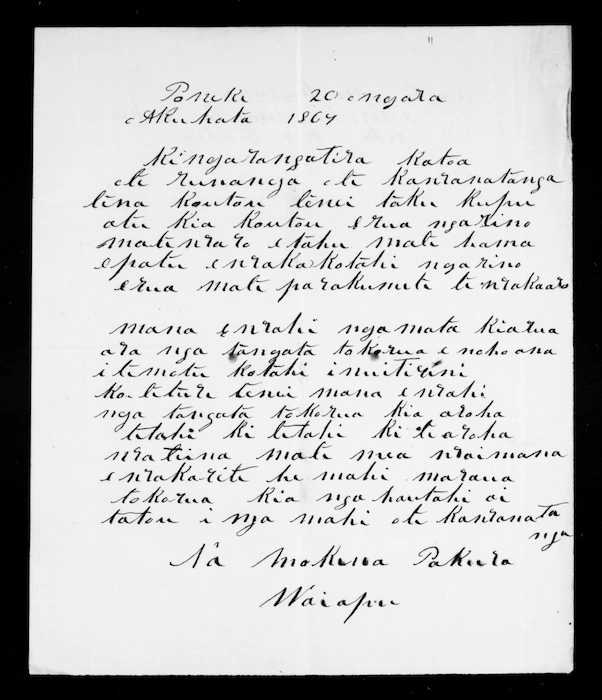 Poneke 20 ongara
o Akuhata 1864
Ki ngarangatira katoa
ote runanga ote kawanatanga
tina koutou tenei taku kupu
atu kia koutou erua ngarino
mate waro etahu mate hama
epatu e waka kotahi ngarino
erua mate parakumete te
mana e wahi nga mata kiarua
ara nga tangata tokorua e noho ana
i te motu kotahi
ko te ture tenei mana e wahi
nga tangata tokorua kia aroha
tetahi ki tetahi ki te aroha
mate mea
e wakarite he mahi maraua
tokorua kia nga hautahi ai
tatou i nga mahi ote kawanata
nga
Na Mokena
Waiapu